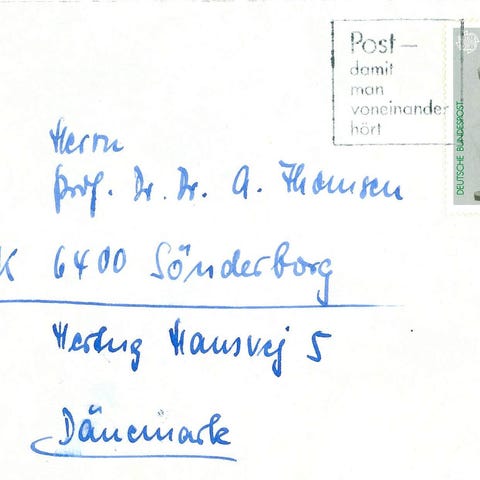 Post –
damit
man
voneinander
hört
DEUTSCHE BUNDESPOST
Herrn
Prof. Dr. Dr. A. Thomsen
K 6400 Sönderborg
Hertug Hansvej 5
Dänemark